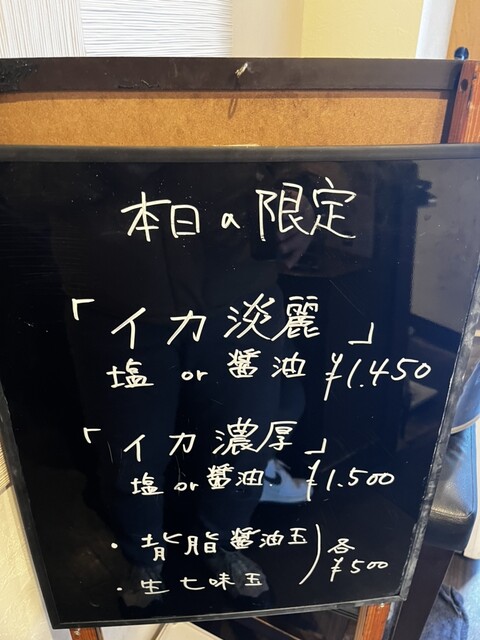 本日の限定
「イカ淡麗」
塩 or 醤油 ¥1.450
「イカ濃厚」
塩 or 醤油 ¥1.500
・背脂醤油玉
・生七味玉
各
¥500